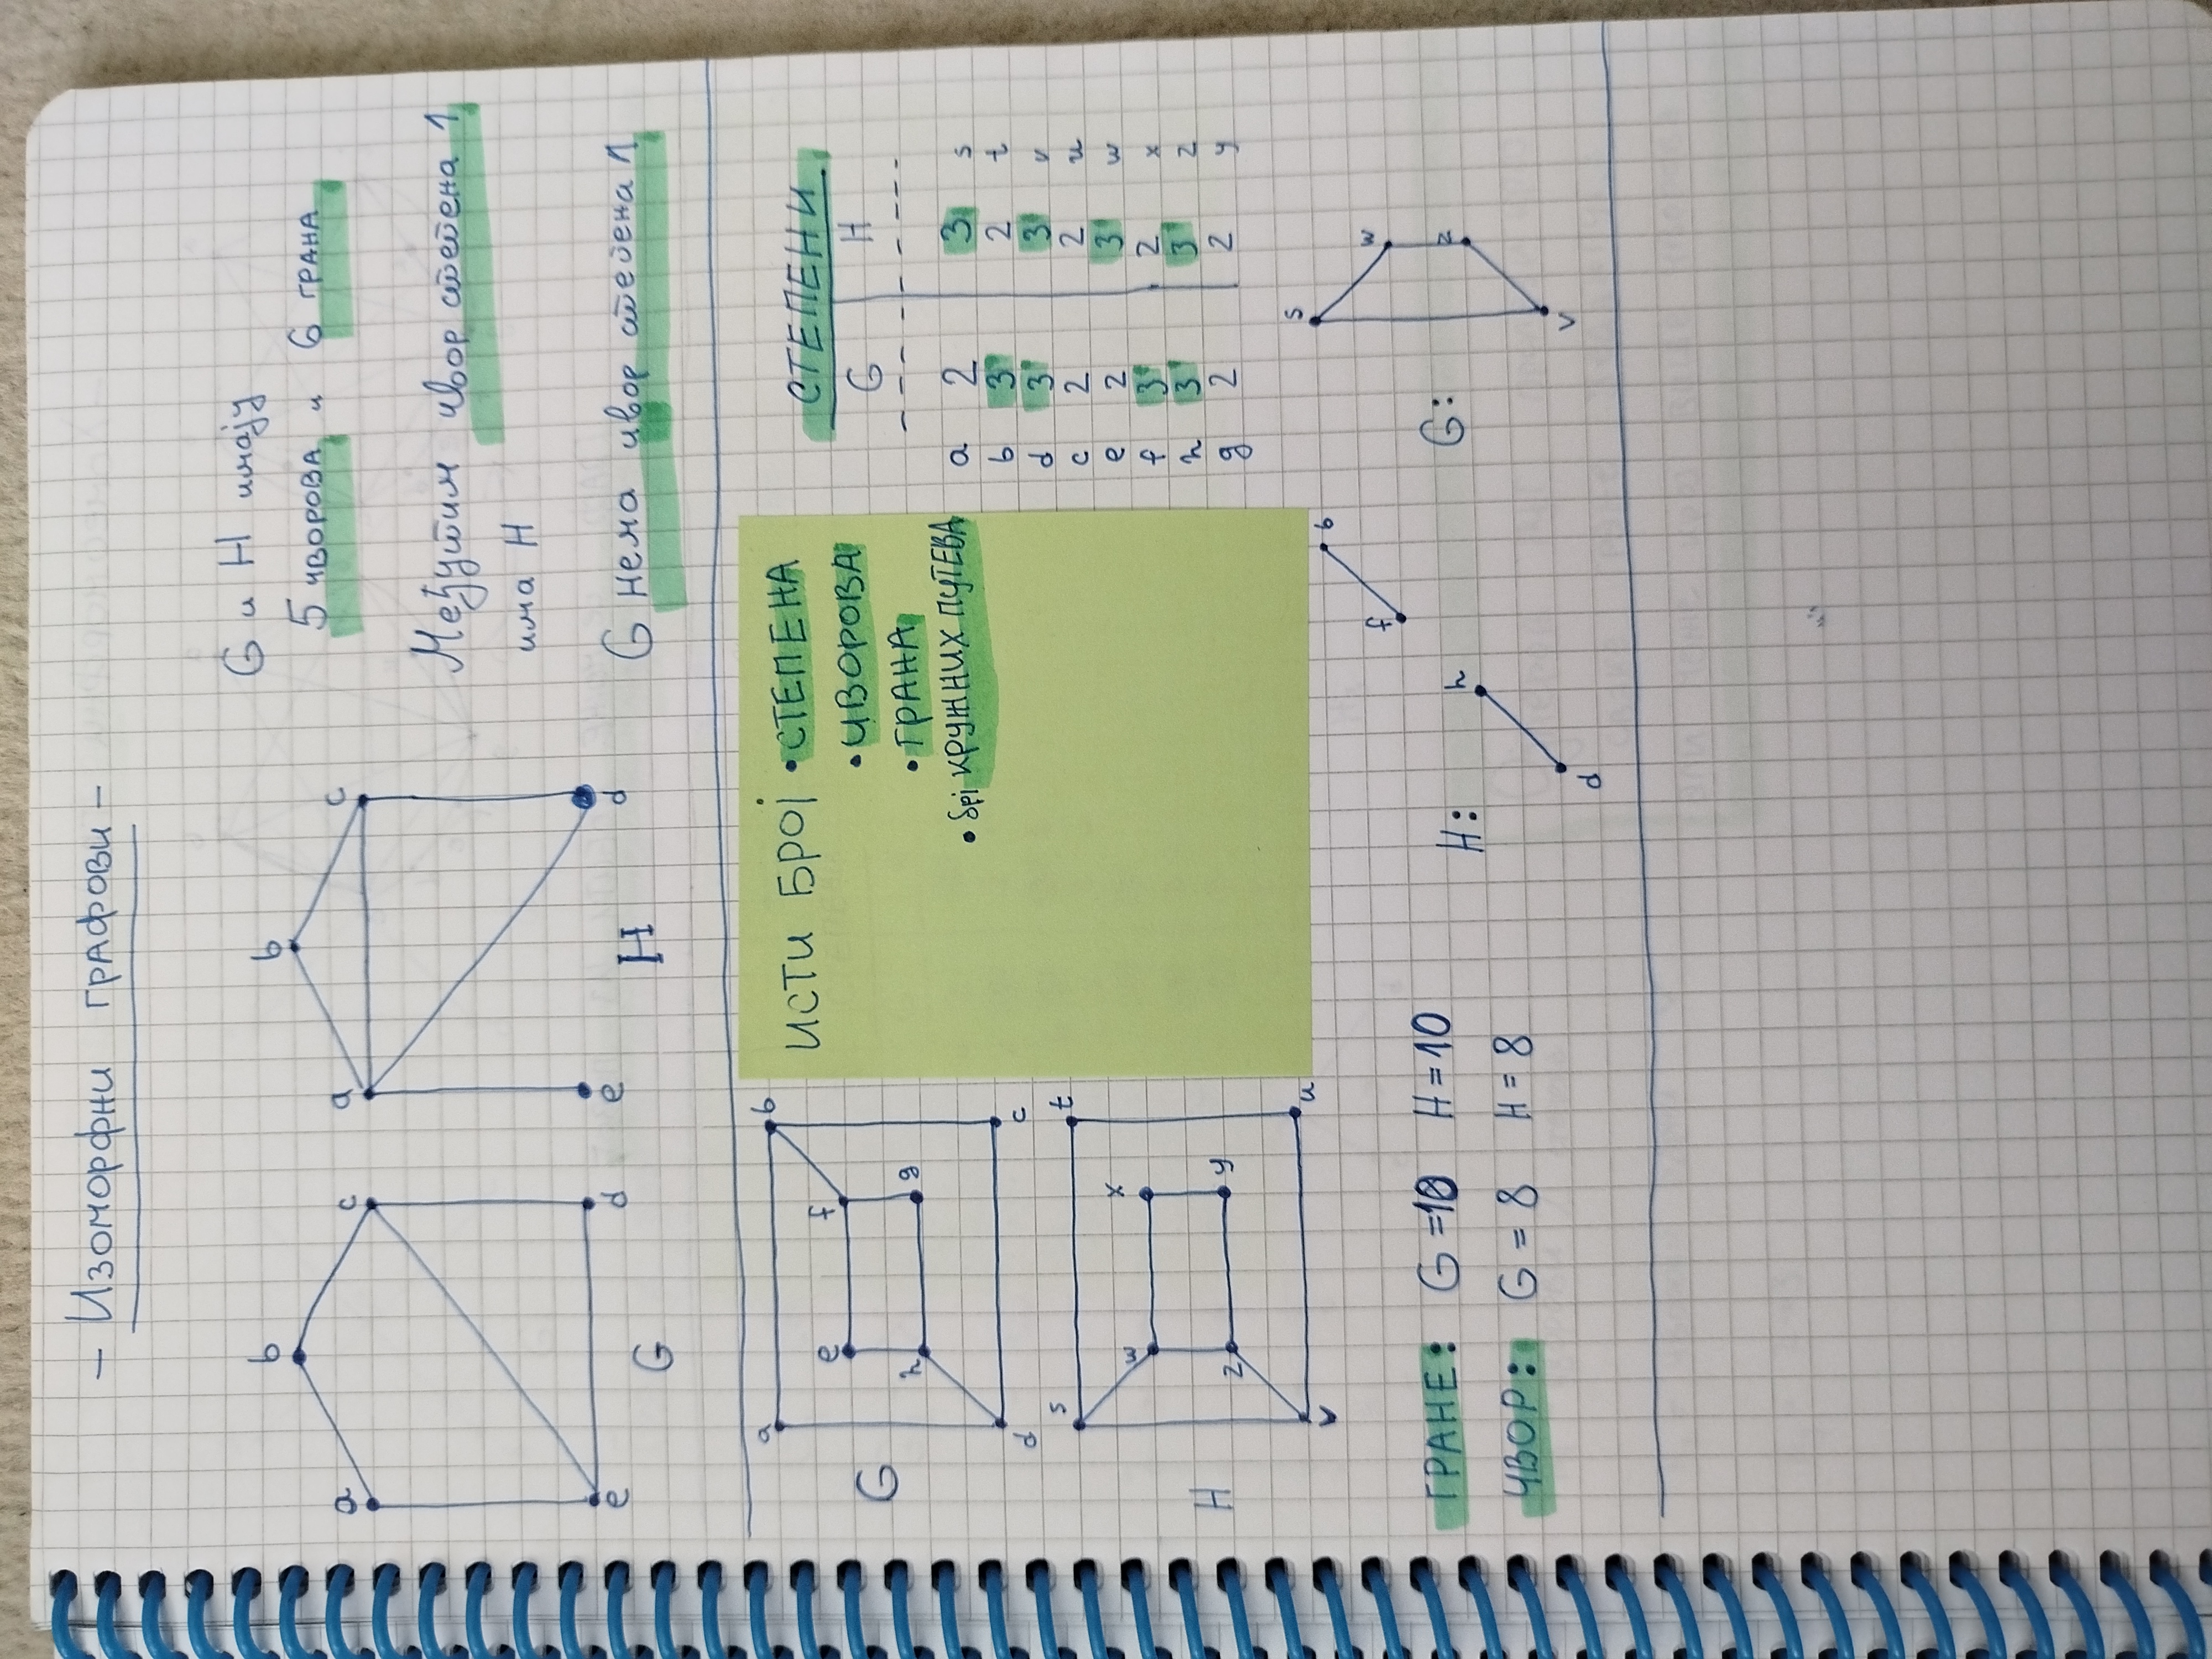 - Изоморфни графови -
b
a
c
e
d
G
b
a
c
e
d
H
G и H имају
5 чворова и 6 грана
Међутим чвор степена 1
има H
G нема чвор степена 1
a
b
e
f
h
g
d
c
G
s
t
w
x
z
y
v
u
H
ИСТИ БРОЈ • СТЕПЕНА
• ЧВОРОВА
• ГРАНА
КРУЖНИХ ПУТЕВА
СТЕПЕНИ
G H
a 2 3 s
b 3 2 t
d 3 3 v
c 2 2 u
e 2 3 w
f 3 2 x
h 3 3 z
g 2 2 y
ГРАНЕ: G = 10 H = 10
ЧВОР: G = 8 H = 8
H:
h
d
f
b
G:
s
w
z
v